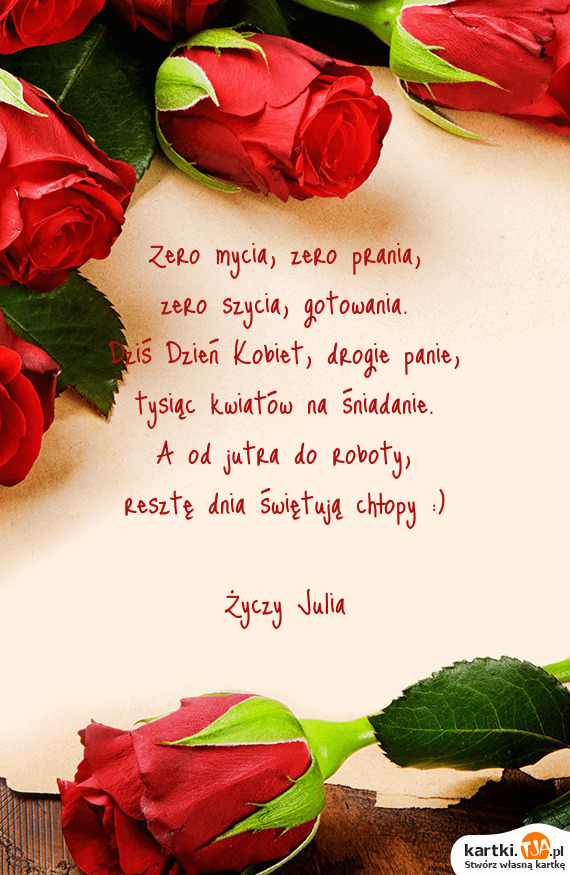 Zero mycia, zero prania,
zero szycia, gotowania.
Dziś Dzień Kobiet, drogie panie,
tysiąc kwiatów na śniadanie.
A od jutra do roboty,
resztę dnia świętują chłopy :)
Życzy Julia
kartki.TJA.pl
Stwórz własną kartkę